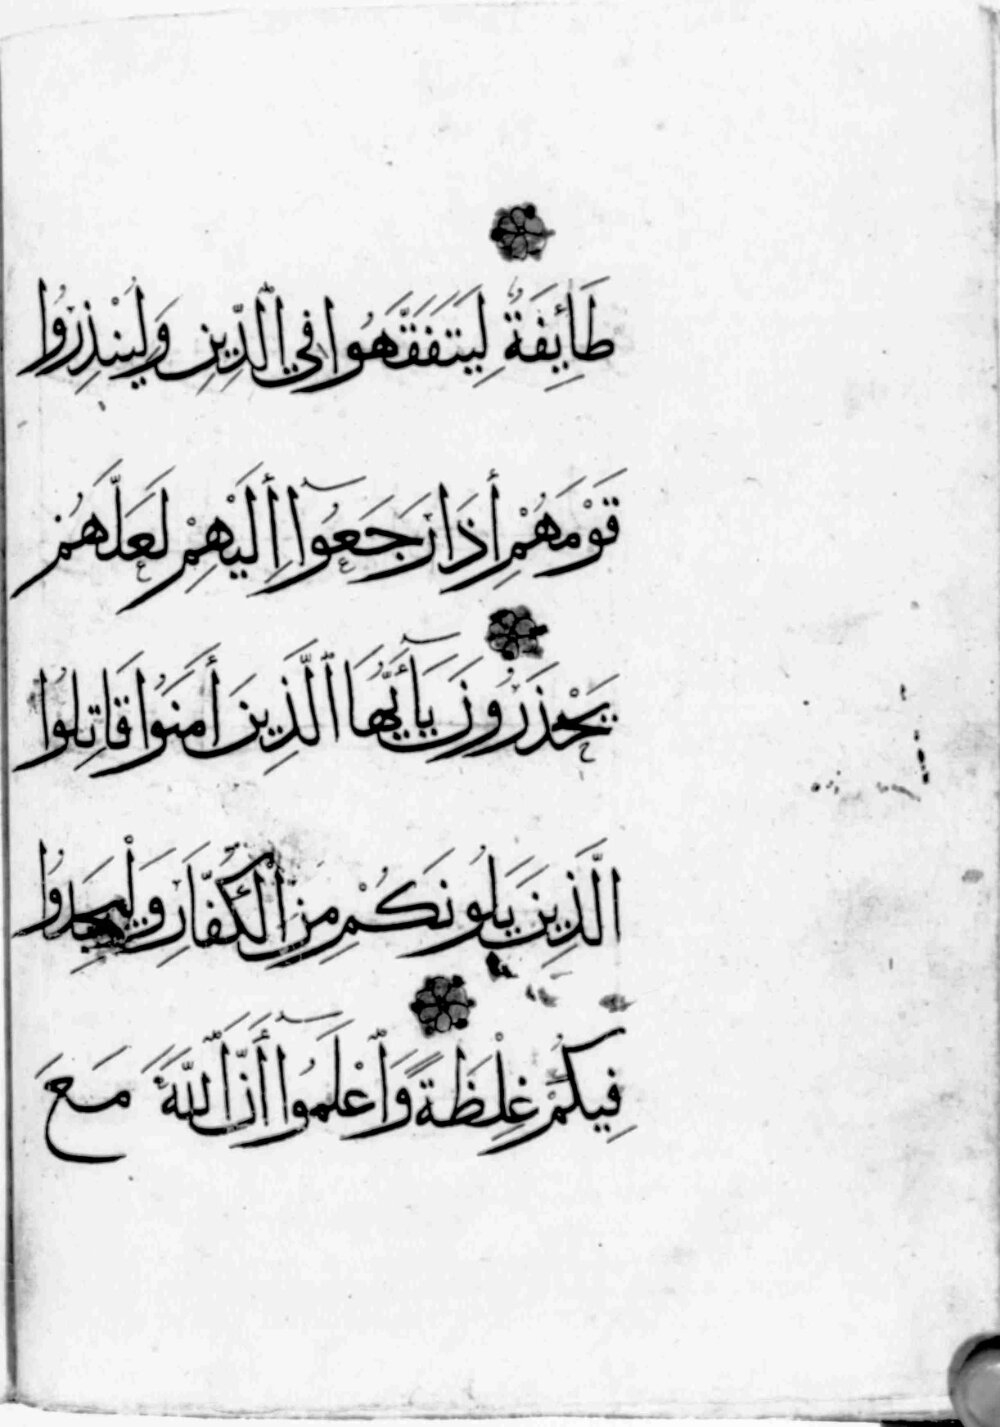 طَائِفَةٌ لِيَتَفَقَّهُوا فِي الدِّينِ وَلِيُنْذِرُوا
قَوْمَهُمْ إِذَا رَجَعُوا إِلَيْهِمْ لَعَلَّهُمْ
يَحْذَرُونَ يَا أَيُّهَا الَّذِينَ آمَنُوا قَاتِلُوا
الَّذِينَ يَلُونَكُمْ مِنَ الْكُفَّارِ وَلْيَجِدُوا
فِيكُمْ غِلْظَةً وَاعْلَمُوا أَنَّ اللَّهَ مَعَ